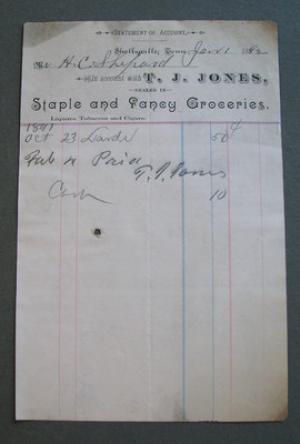 STATEMENT OF ACCOUNT.
Shelbyville, Tenn. Jan 1 188
Mr H. C. Shepard
In account with T. J. JONES,
DEALER IN
Staple and Fancy Groceries.
Liquors, Tobaccos and Cigars.
1881
Oct 23 50
Paid
T. J. Jones
10